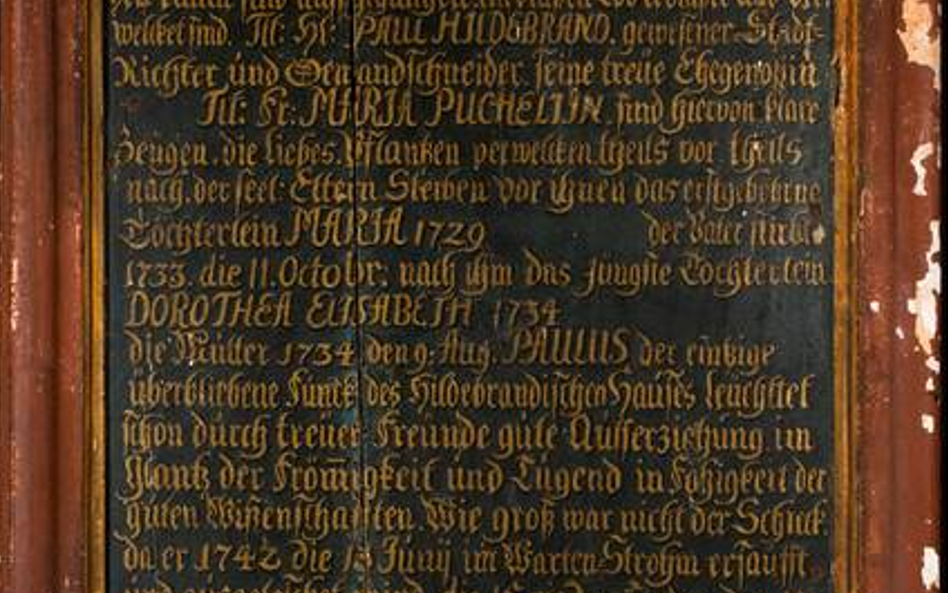 welcket sind. Tit: Hr: PAUL HILDEBRAND. gewesner Stadt-
Richter und Gewandschneider. seine treue Ehegenoßin
Tit: Fr: MARIA PUCHELTIN sind hiervon klare
Zeugen. die liebes. Pflantzen verwelcken theils vor theils
nach. der seel: Eltern Sterben vor ihnen das erstgebohrne
Töchterlein MARIA 1729 der Vater stirbt
1733. die 11. Octobr: nach ihm das Jüngste Töchterlein
DOROTHEA ELISABETH 1734
die Mutter 1734 den 9. Aug. PAULUS der eintzige
überbliebene Funck des Hildebrandischen Hauses leuchtet
schon durch treuer Freunde gute Aufferziehung im
Glantz der Frömigkeit und Tugend in Fähigkeit der
guten Wißenschafften. Wie groß war nicht der Schmertz
da er 1742 die Junij im Warten-Strohm ersaufft